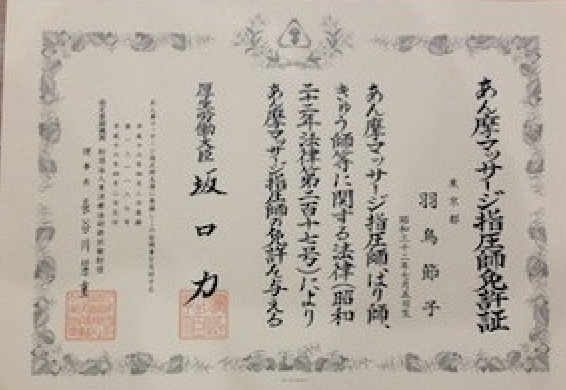 あん摩マッサージ指圧師免許証
東京都
羽鳥節子
昭和三十二年七月五日生
あん摩マッサージ指圧師、はり師、
きゅう師等に関する法律(昭和
二十二年法律第二百十七号)により
あん摩マッサージ指圧師の免許を与える
厚生労働大臣 坂口 力
理事長 長谷川慧重